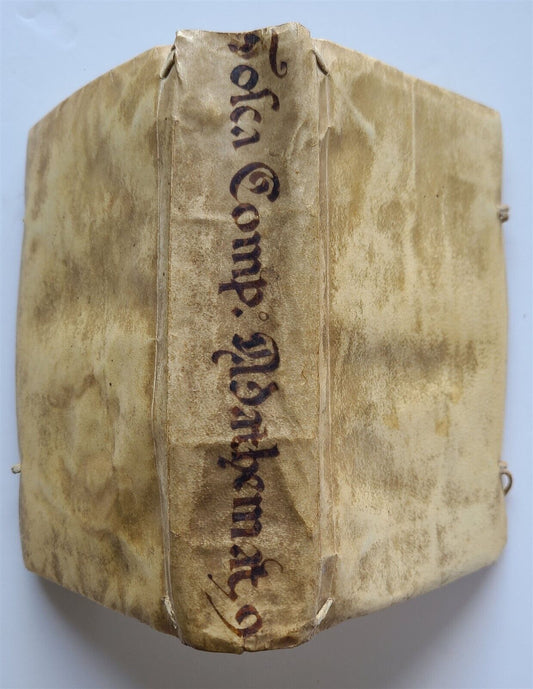 Tosca Comp.º Mathemat. 9